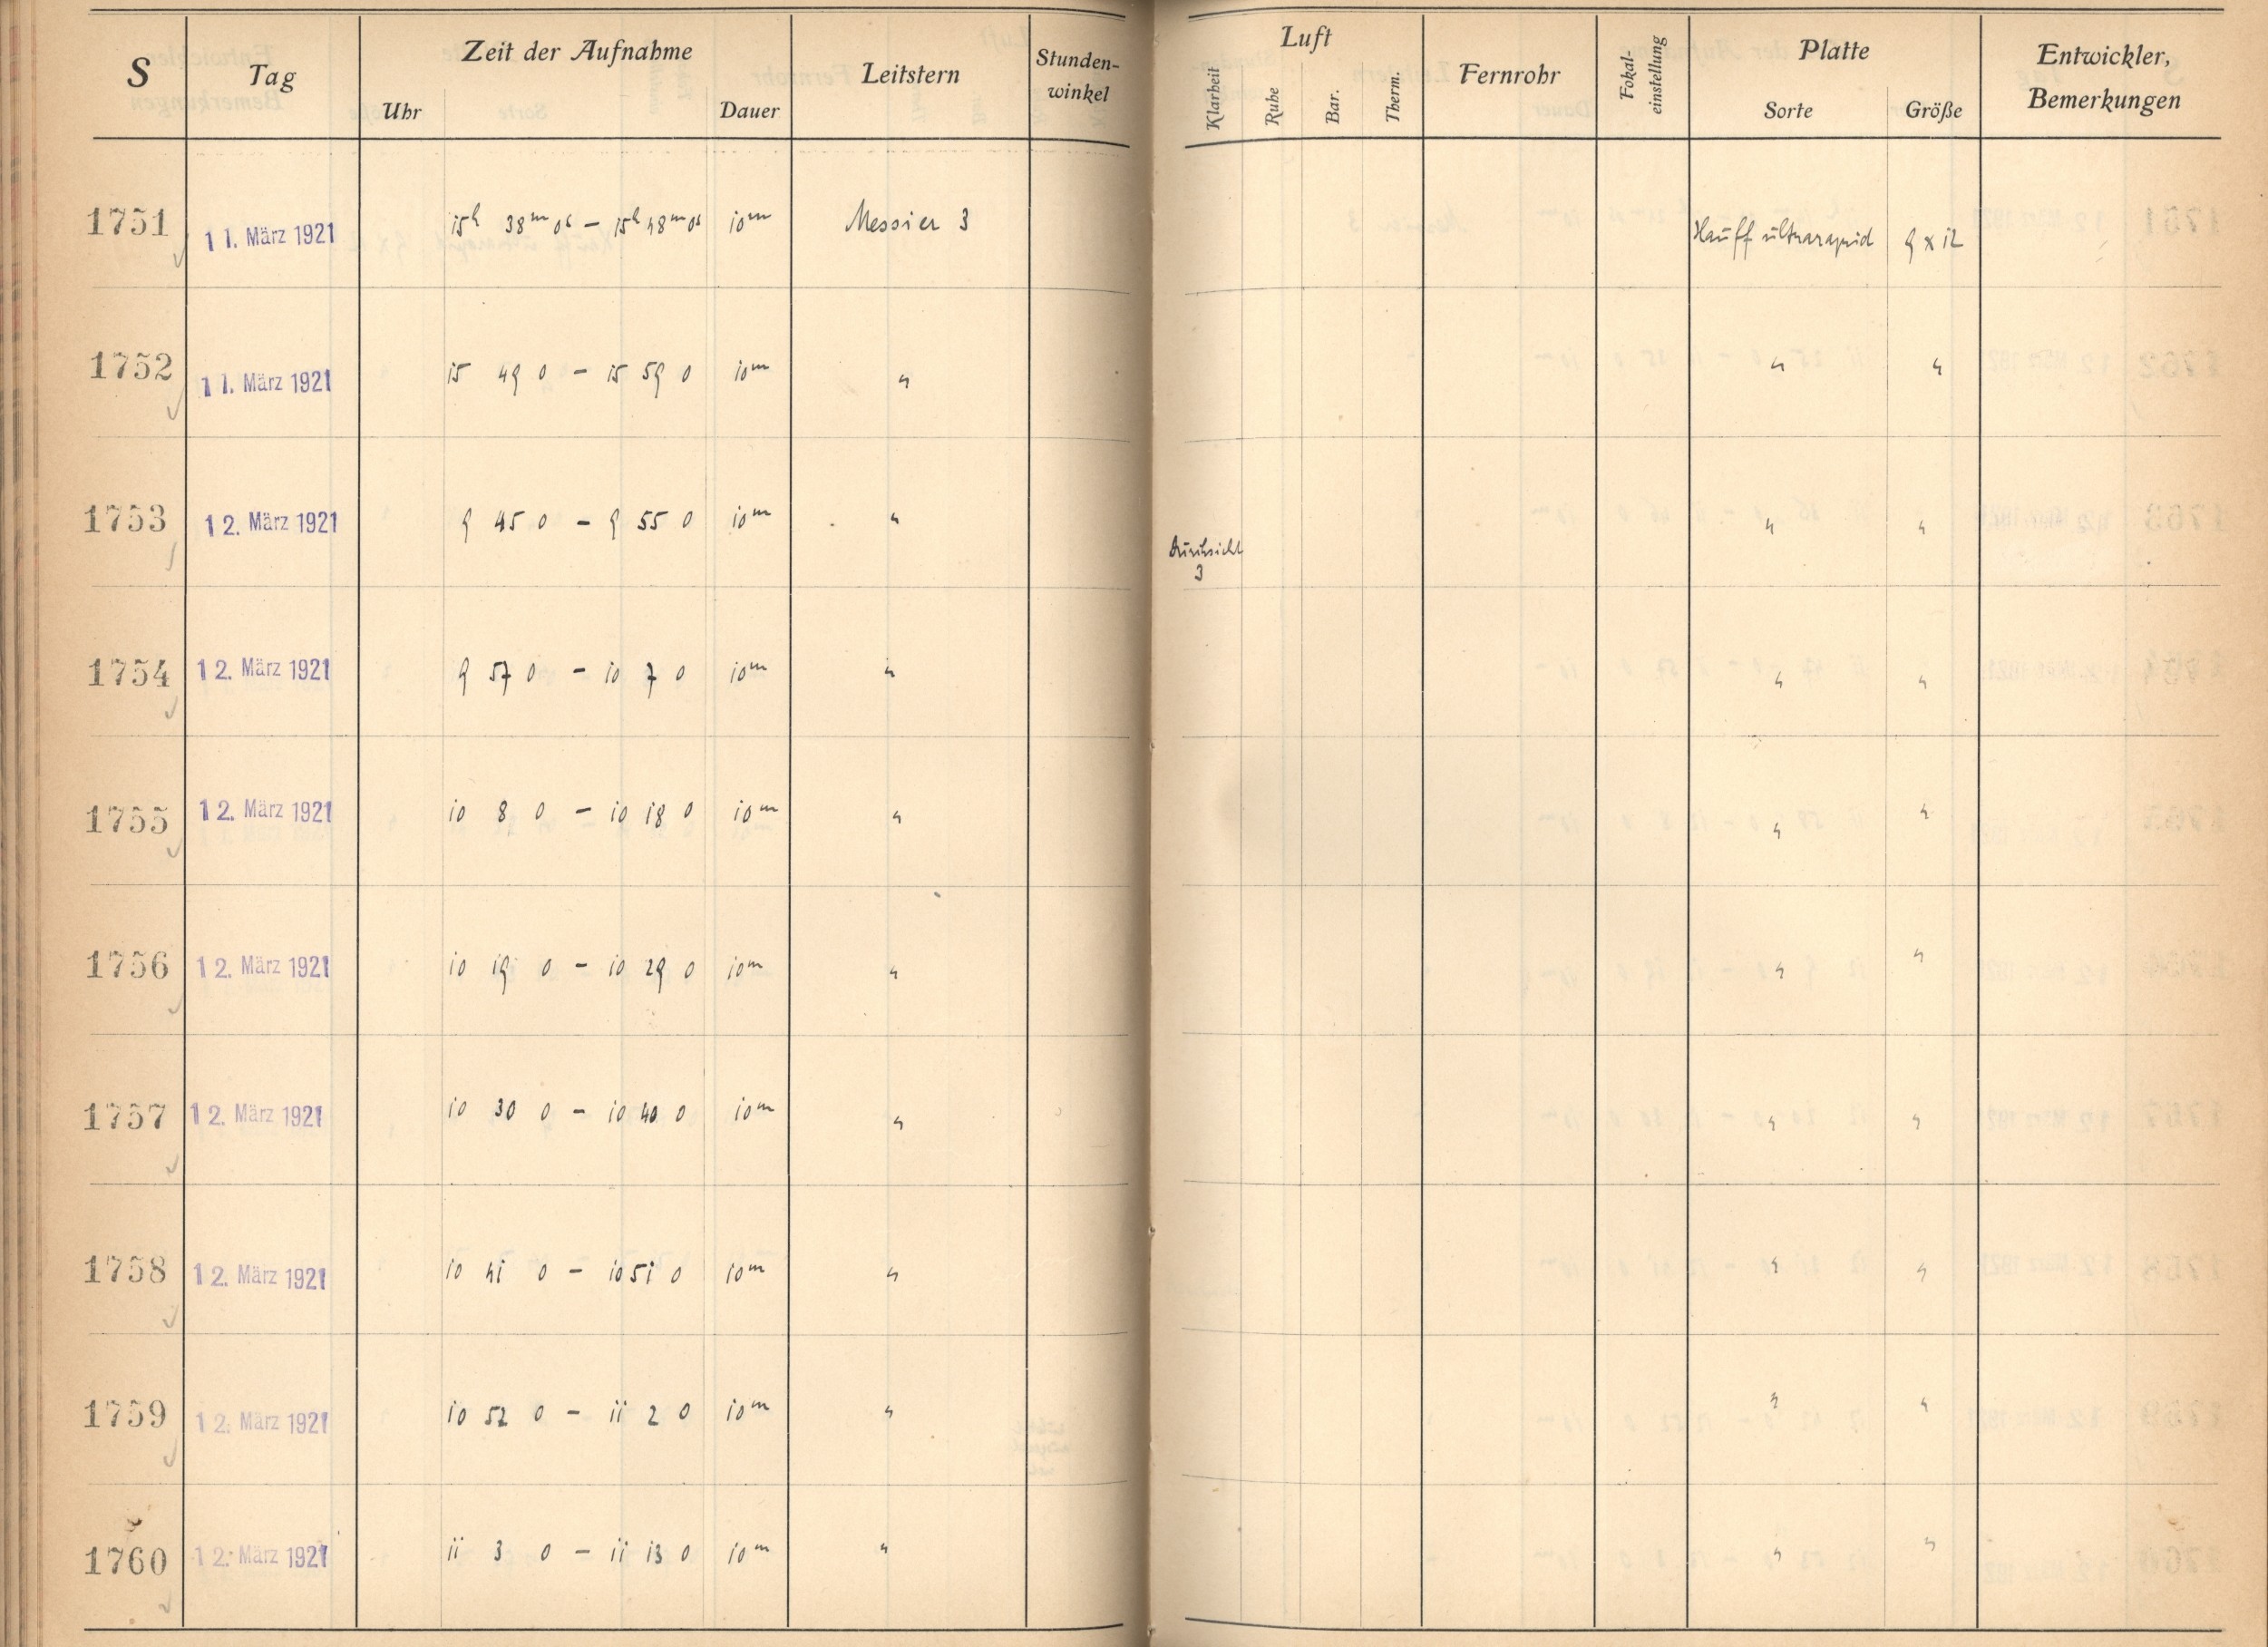 S Tag Zeit der Aufnahme Leitstern Stunden-winkel Luft Fernrohr Fokal-einstellung Platte Entwickler, Bemerkungen
Uhr Dauer Klarheit Ruhe Bar. Therm. Sorte Größe
1751 11. März 1921 15h 38m 0s – 15h 48m 0s 10m Messier 3 Hauff ultrarapid 9 x 12
1752 11. März 1921 15 49 0 – 15 59 0 10m " " "
1753 12. März 1921 9 45 0 – 9 55 0 10m " Durchsicht 3 " "
1754 12. März 1921 9 57 0 – 10 7 0 10m " " "
1755 12. März 1921 10 8 0 – 10 18 0 10m " " "
1756 12. März 1921 10 19 0 – 10 29 0 10m " " "
1757 12. März 1921 10 30 0 – 10 40 0 10m " " "
1758 12. März 1921 10 41 0 – 10 51 0 10m " " "
1759 12. März 1921 10 52 0 – 11 2 0 10m " " "
1760 12. März 1921 11 3 0 – 11 13 0 10m " " "